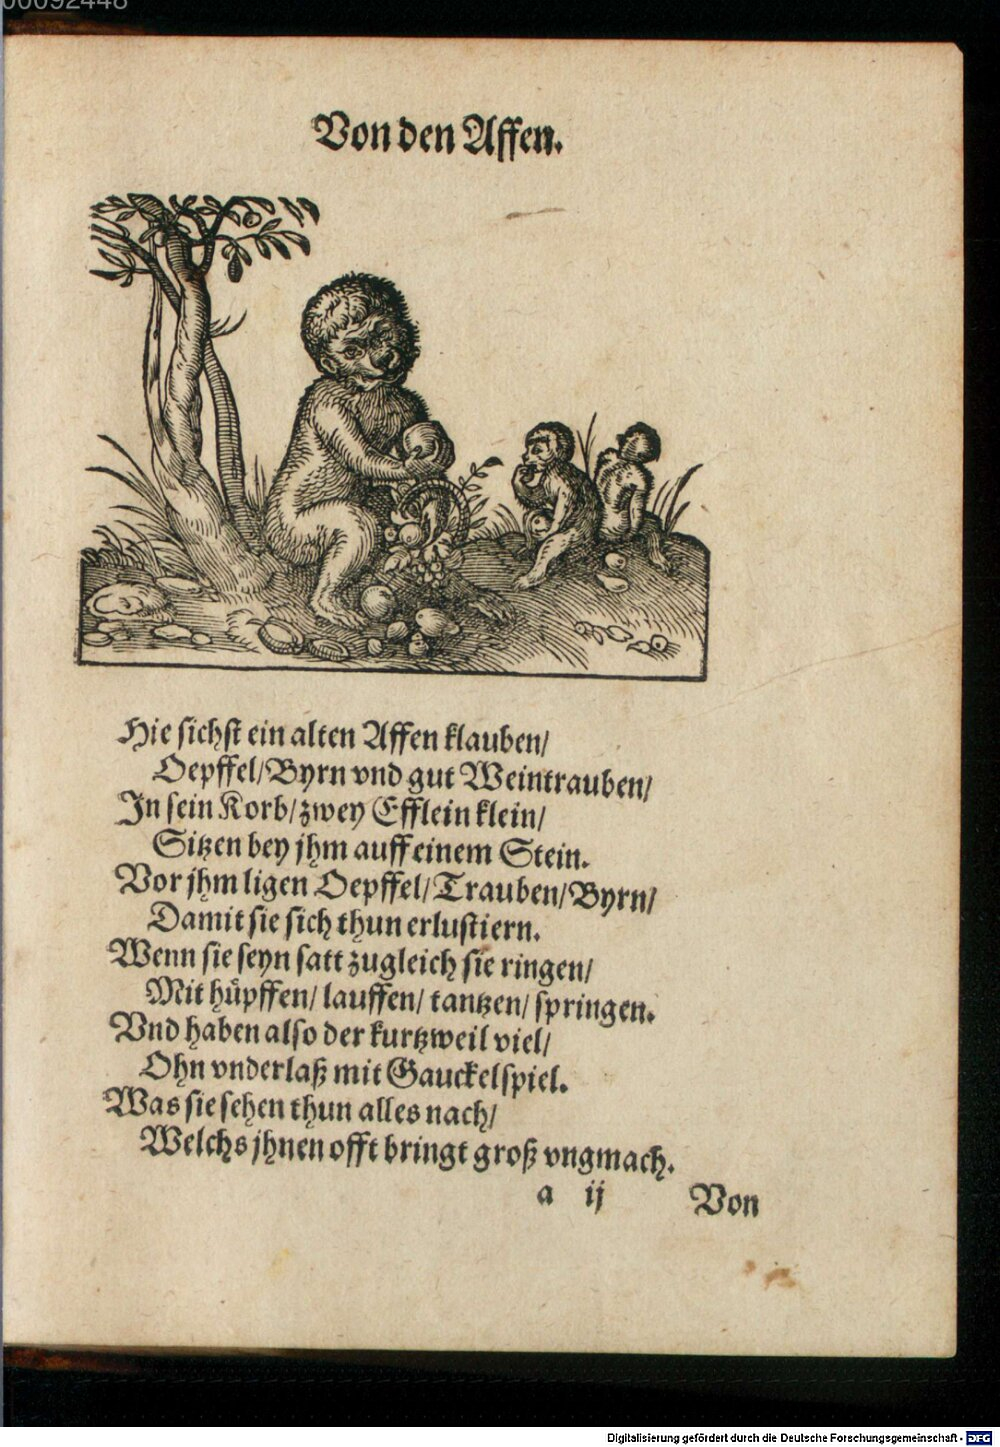 00092448
Von den Affen.
Hie sichst ein alten Affen klauben/
Oepffel/Byrn vnd gut Weintrauben/
In sein Korb/zwey Efflein klein/
Sitzen bey jhm auff einem Stein.
Vor jhm ligen Oepffel/Trauben/Byrn/
Damit sie sich thun erlustiern.
Wenn sie seyn satt zugleich sie ringen/
Mit hüpffen/ lauffen/ tantzen/ springen.
Vnd haben also der kurtzweil viel/
Ohn vnderlaß mit Gauckelspiel.
Was sie sehen thun alles nach/
Welchs jhnen offt bringt groß vngmach.
a ij Von
Digitalisierung gefördert durch die Deutsche Forschungsgemeinschaft - DFG